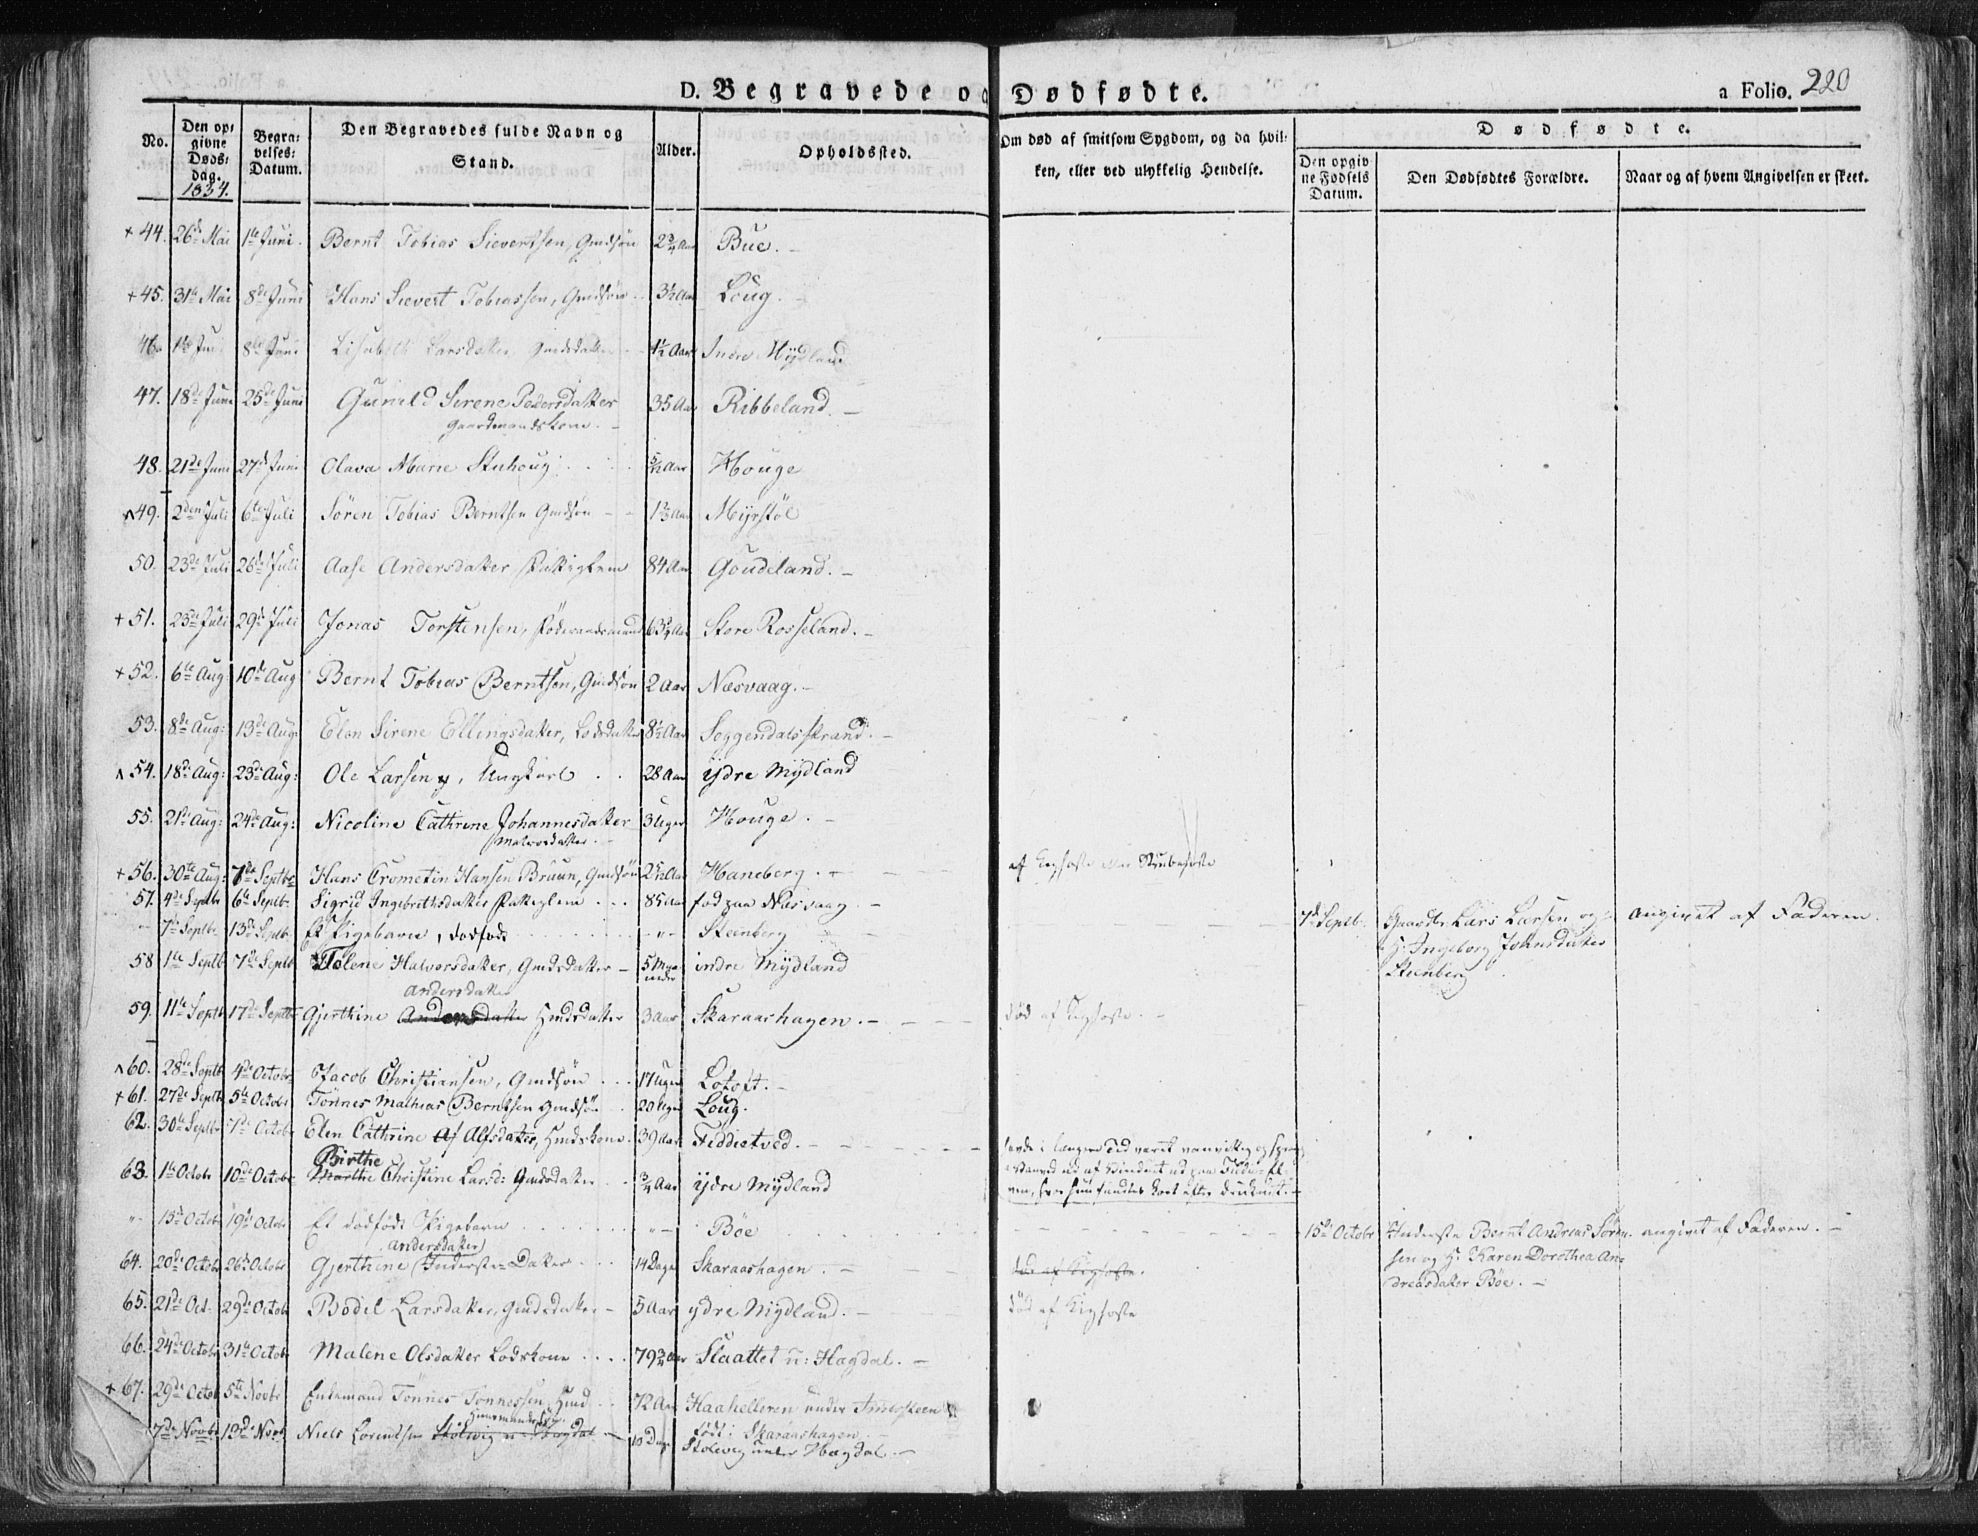 D. Begravede og Dødfødte.
a Folio. 220
No.
Den opgivne Døds-dag. 1834.
Begravelses-Datum.
Den Begravedes fulde Navn og Stand.
Alder.
Opholdssted.
Om død af smitsom Sygdom, og da hvilken, eller ved ulykkelig Hendelse.
Dødfødte.
Den opgivne Fødsels Datum.
Den Dødfødtes Forældre.
Naar og af hvem Angivelsen er skeet.
+ 44. 26de Mai 1te Juni. Bernt Tobias Sievertsen, Gmdsøn 2 3/4 Aar Bue.
+ 45. 31te Mai 8de Juni Hans Sievert Tobiassen, Gmdsøn 3 1/2 Aar Loug.
46. 1te Juni 8de Juni Lisabeth Larsdatter, Gmdsdatter 1 1/2 Aar Indre Mydland
47. 18de Juni 25de Juni Gunild Sirene Pedersdatter 35 Aar Ribbeland.
Gaardmandskone.
48. 21de Juni 27de Juni Olava Marie Stuhoug 5/12 Aar Houge
49. 2den Juli 6te Juli Sören Tobias Berntsen Gmdsøn 1 2/3 Aar Myrstöl
50. 23de Juli 26de Juli Aase Andersdatter, Fattiglem 84 Aar Goudeland.
+ 51. 25de Juli 29de Juli Jonas Torstensen, Föderaadsmand 63 3/4 Aar Store Rosseland.
+ 52. 6te Aug 10de Aug Bernt Tobias Berntsen, Gmdsön 2 Aar Næsvaag.
53. 8de Aug: 13de Aug: Elen Sirene Ellingsdatter, Lodsdatter 8 1/2 Aar Soggendalsstrand.
54. 18de Aug: 23de Aug: Ole Larsen, Ungkarl 28 Aar ydre Mydland
55. 21de Aug: 24de Aug: Nicoline Cathrine Johannesdatter 3 Uger Houge.
Matrosdatter.
+ 56. 30te Aug: 7de Septbr Hans Crometin Hansen Bruun, Gmdsön 2 5/12 Aar Haneberg. af Kighoste eller Strubehoste
57. 4de Septbr 6te Septbr. Sigrid Ingebrethsdatter Fattiglem 85 Aar fød paa Næsvaag
" 7de Septbr. 13de Septbr. Et Pigebarn, dødfødt " Steinberg 7de Septb. Gaardbr. Lars Larsen og angivet af Faderen.
H. Ingeborg Johnsdatter
Steinberg
58 1te Septb 7de Septb Tolene Halvorsdatter, Gmdsdatter 5 Maaneder indre Mydland
Andersdatter
59. 11te Septb 17de Septbr Gjerthine Andersdatter Hmdsdatter 3 Aar Skaraashagen. død af Kighoste.
60. 28de Septb 4de Octobr Jacob Christiansen, Gmdsön 17 Uger Lotoft.
+ 61. 27de Septb 5te Octobr Tönnes Mathias Berntsen Gmdsön 20 Uger Loug.
62. 30te Septbr 7de Octobr Elen Cathrine Af Alfsdatter, Hmdskone 39 Aar Fiddietved.
havde i længere Tid været vanvittig
hvor hun fandtes kort efter druknet.
Birthe
63. 1te Octobr 10de Octobr Marthe Christine Larsd: Gmdsdatter 3/4 Aar ydre Mydland
" 15de Octobr 19de Octobr Et dödfödt Pigebarn " Böe 15de Octobr Inderste Bernt Andreas Sören- angivet af Faderen.
sen og H. Karen Dorothea An-
dreasdatter Böe.
Andersdatter
64. 20de Octobr 26de Octobr Gjerthine Inderste-Datter 14 Dage Skaraashagen. død af Kighoste.
65. 21de Oct. 29de Octobr Bodil Larsdatter, Gmdsdatter 5 Aar ydre Mydland. död af Kighoste
66. 24de Octobr 31te Octobr Malene Olsdatter Lodskone 79 3/4 Aar Slaattet u: Hagdal.
+ 67. 29de Octob 5te Novbr Enkemand Tönnes Tönnessen, Hmd 72 Aar Haahelleren under
Huusmandssön
7de Novbr 13de Novb Niels Lorentsen Stolevig u: Hagdal 10 Dage födt: Skaraashagen.
Stolevig under Hagdal.